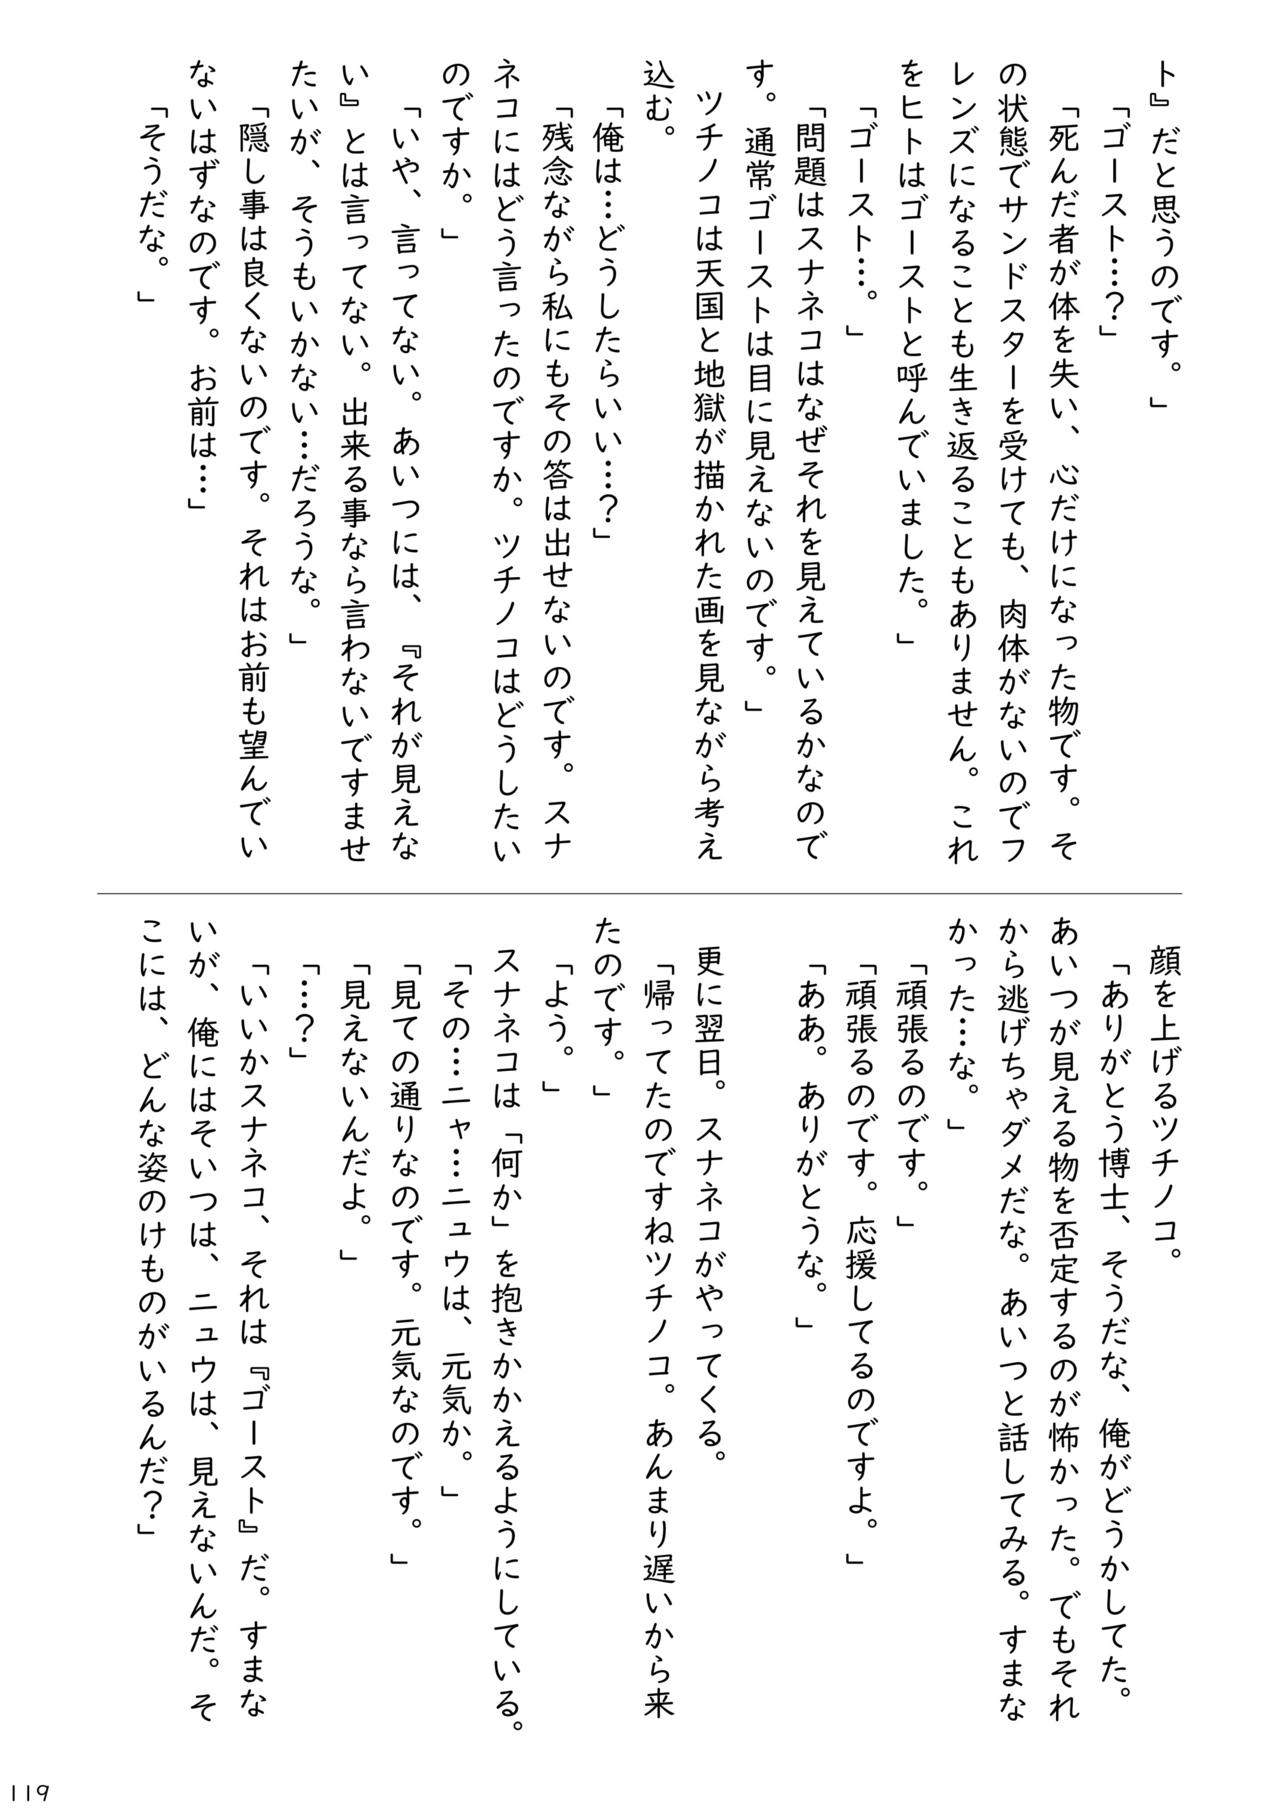 ト』だと思うのです。」
「ゴースト…？」
「死んだ者が体を失い、心だけになった物です。そ
の状態でサンドスターを受けても、肉体がないのでフ
レンズになることも生き返ることもありません。これ
をヒトはゴーストと呼んでいました。」
「ゴースト…。」
「問題はスナネコはなぜそれを見えているかなので
す。通常ゴーストは目に見えないのです。」
ツチノコは天国と地獄が描かれた画を見ながら考え
込む。
「俺は…どうしたらいい…？」
「残念ながら私にもその答は出せないのです。スナ
ネコにはどう言ったのですか。ツチノコはどうしたい
のですか。」
「いや、言ってない。あいつには、『それが見えな
い』とは言ってない。出来る事なら言わないですませ
たいが、そうもいかない…だろうな。」
「隠し事は良くないのです。それはお前も望んでい
ないはずなのです。お前は…」
「そうだな。」
顔を上げるツチノコ。
「ありがとう博士、そうだな、俺がどうかしてた。
あいつが見える物を否定するのが怖かった。でもそれ
から逃げちゃダメだな。あいつと話してみる。すまな
かった…な。」
「頑張るのです。」
「頑張るのです。応援してるのですよ。」
「ああ。ありがとうな。」
更に翌日。スナネコがやってくる。
「帰ってたのですねツチノコ。あんまり遅いから来
たのです。」
「よう。」
スナネコは「何か」を抱きかかえるようにしている。
「その…ニャ…ニュウは、元気か。」
「見ての通りなのです。元気なのです。」
「見えないんだよ。」
「…？」
「いいかスナネコ、それは『ゴースト』だ。すまな
いが、俺にはそいつは、ニュウは、見えないんだ。そ
こには、どんな姿のけものがいるんだ？」
119